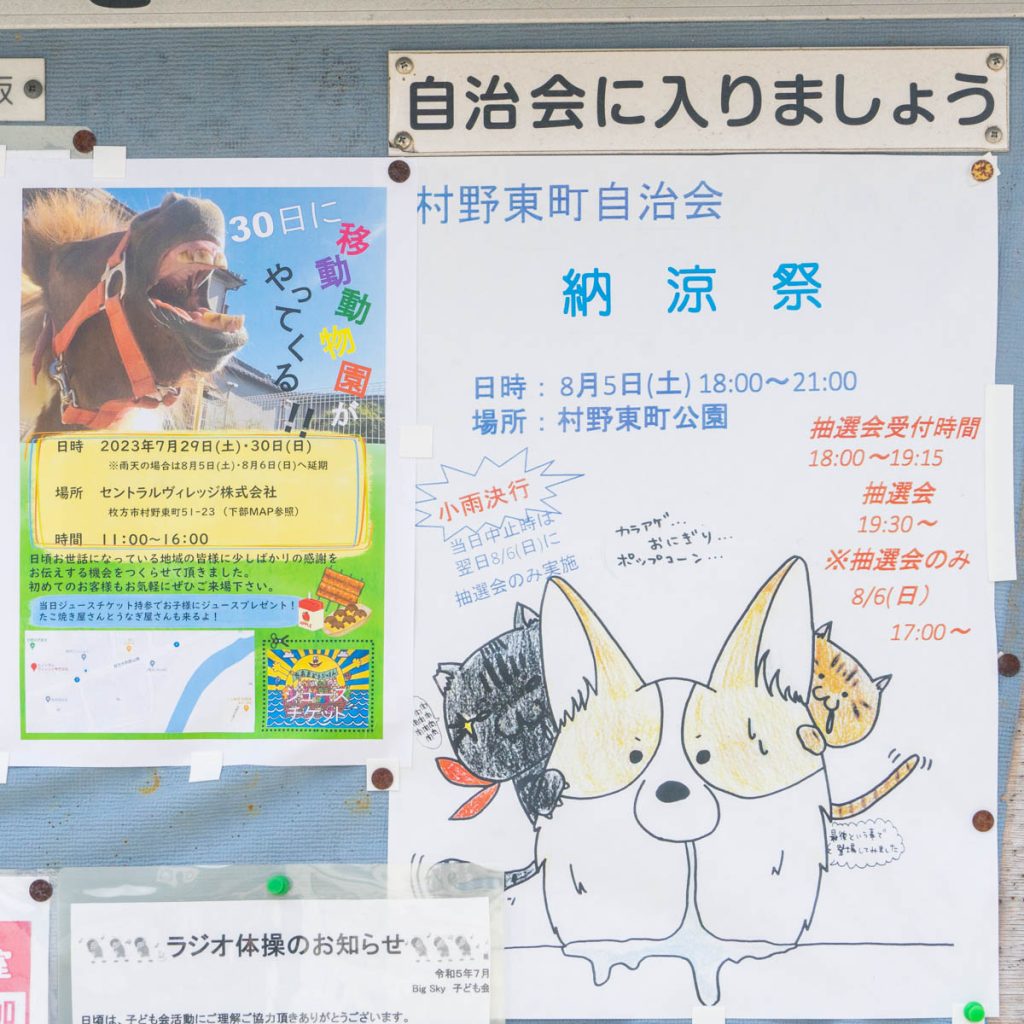 自治会に入りましょう
30日に
移動動物園が
やってくる!!
日時 2023年7月29日(土)・30日(日)
※雨天の場合は8月5日(土)・8月6日(日)へ延期
場所 セントラルヴィレッジ株式会社
枚方市村野東町51-23 (下部MAP参照)
時間 11:00〜16:00
日頃お世話になっている地域の皆様に少しばかりの感謝を
お伝えする機会をつくらせて頂きました。
初めてのお客様もお気軽にぜひご来場下さい。
当日ジュースチケット持参でお子様にジュースプレゼント！
たこ焼き屋さんとうなぎ屋さんも来るよ！
ジュース
チケット
村野東町自治会
納涼祭
日時：8月5日(土) 18:00〜21:00
場所：村野東町公園
小雨決行
当日中止時は
翌日8/6(日)に
抽選会のみ実施
抽選会受付時間
18:00〜19:15
抽選会
19:30〜
※抽選会のみ
8/6(日)
17:00〜
カラアゲ…
おにぎり…
ポップコーン…
最後という事で
登場してみました
ラジオ体操のお知らせ
令和5年7月
Big Sky 子ども会
日頃は、子ども会活動にご理解ご協力頂きありがとうございます。